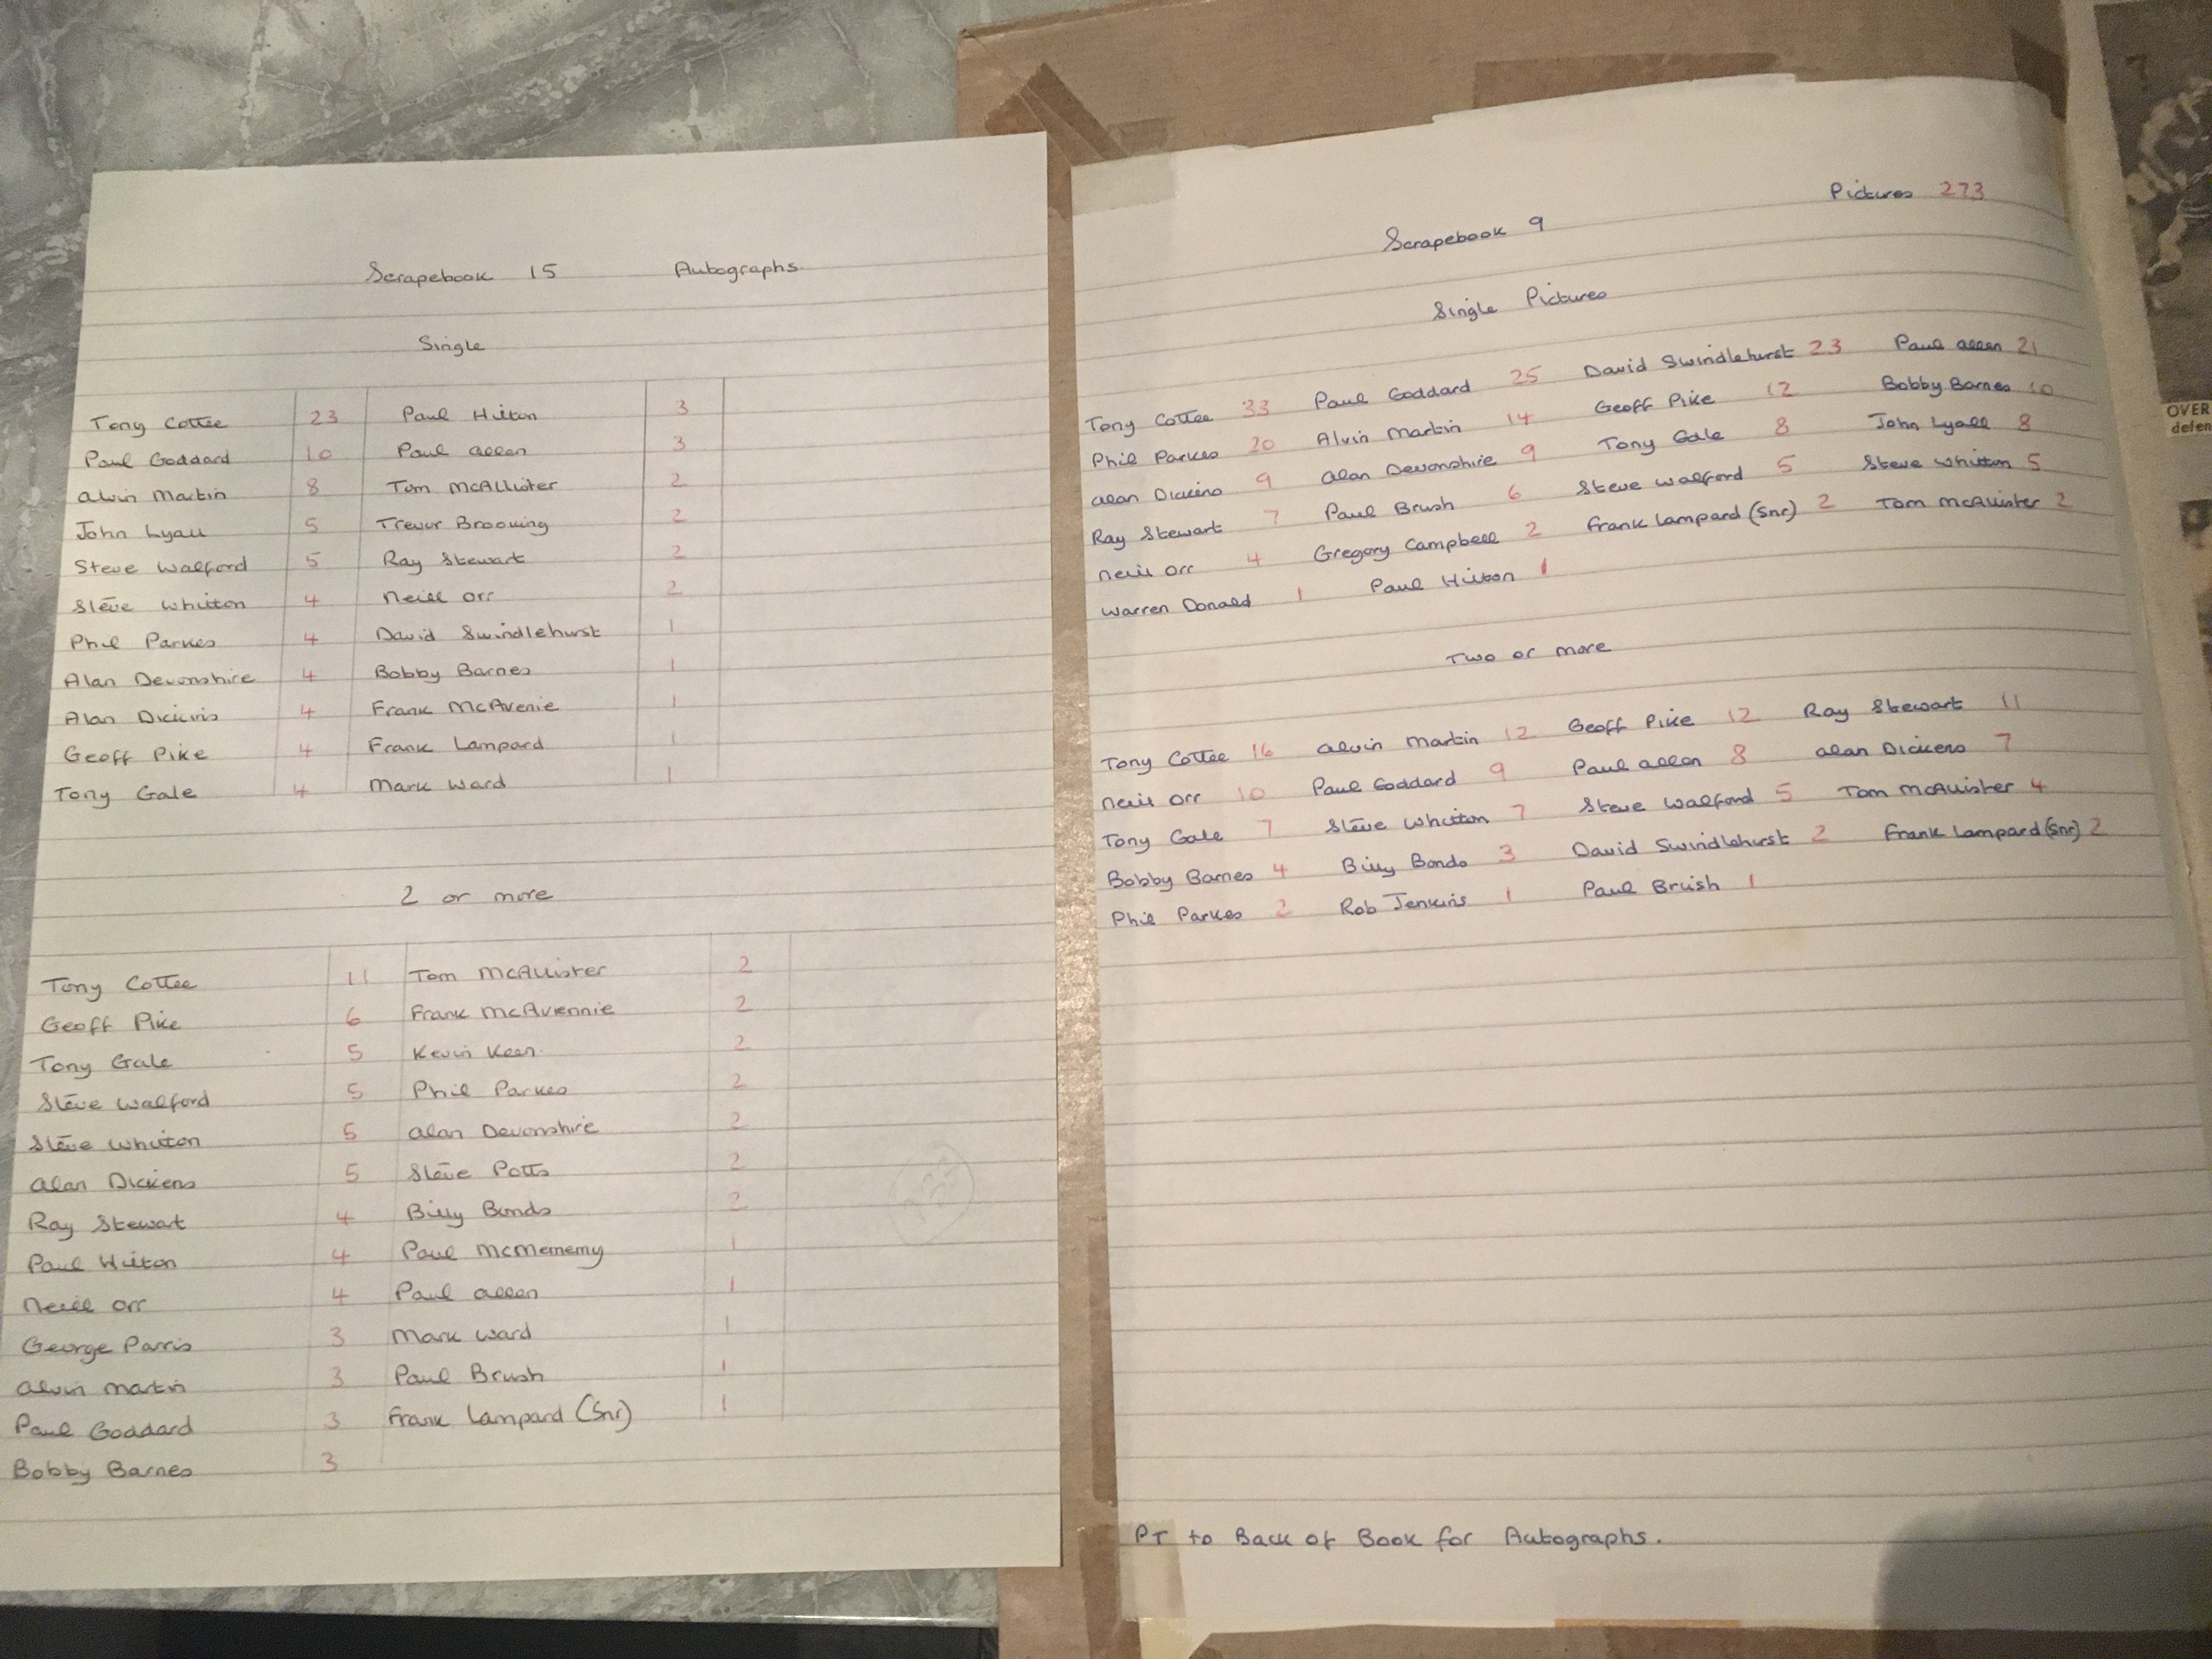 Scrapebook 15 Autographs.
Single
Tony Cottee 23 Paul Hilton 3
Paul Goddard 10 Paul Allen 3
Alvin Martin 8 Tom McAllister 2
John Lyall 5 Trevor Brooking 2
Steve Walford 5 Ray Stewart 2
Steve Whitton 4 Neill Orr 2
Phil Parkes 4 David Swindlehurst 1
Alan Devonshire 4 Bobby Barnes 1
Alan Dickins 4 Frank McAvenie 1
Geoff Pike 4 Frank Lampard 1
Tony Gale 4 Mark Ward 1
2 or more
Tony Cottee 11 Tom McAllister 2
Geoff Pike 6 Frank McAvennie 2
Tony Gale 5 Kevin Keen. 2
Steve Walford 5 Phil Parkes 2
Steve Whitton 5 Alan Devonshire 2
Alan Dickens 5 Steve Potts 2
Ray Stewart 4 Billy Bonds 2
Paul Hilton 4 Paul McMenemy 1
Neill Orr 4 Paul Allen 1
George Parris 3 Mark Ward 1
Alvin Martin 3 Paul Brush 1
Paul Goddard 3 Frank Lampard (Snr) 1
Bobby Barnes 3
Pictures 273
Scrapebook 9
Single Pictures
Tony Cottee 33 Paul Goddard 25 David Swindlehurst 23 Paul Allen 21
Phil Parkes 20 Alvin Martin 14 Geoff Pike 12 Bobby Barnes 10
Alan Dickins 9 Alan Devonshire 9 Tony Gale 8 John Lyall 8
Ray Stewart 7 Paul Brush 6 Steve Walford 5 Steve Whitton 5
Neill Orr 4 Gregory Campbell 2 Frank Lampard (Snr) 2 Tom McAllister 2
Warren Donald 1 Paul Hilton 1
Two or more
Tony Cottee 16 Alvin Martin 12 Geoff Pike 12 Ray Stewart 11
Neill Orr 10 Paul Goddard 9 Paul Allen 8 Alan Dickens 7
Tony Gale 7 Steve Whitton 7 Steve Walford 5 Tom McAllister 4
Bobby Barnes 4 Billy Bonds 3 David Swindlehurst 2 Frank Lampard (Snr) 2
Phil Parkes 2 Rob Jenkins 1 Paul Brush 1
PT to Back of Book for Autographs.
OVER
defen